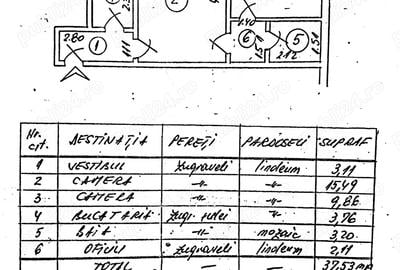 2
1
2.80
1.11
6
5
1.40
2.12
1.51
Nr. crt. DESTINAȚIA PEREȚI PARDOSELI SUPRAF
1 VESTIBUL zugraveli linoleum 3,11
2 CAMERA -"- -"- 15,49
3 CAMERA -"- -"- 9,86
4 BUCATARIA zugr. ulei -"- 3,76
5 BAIA -"- mozaic 3,20
6 OFICIU zugraveli linoleum 2,11
TOTAL — — 37,53 MP